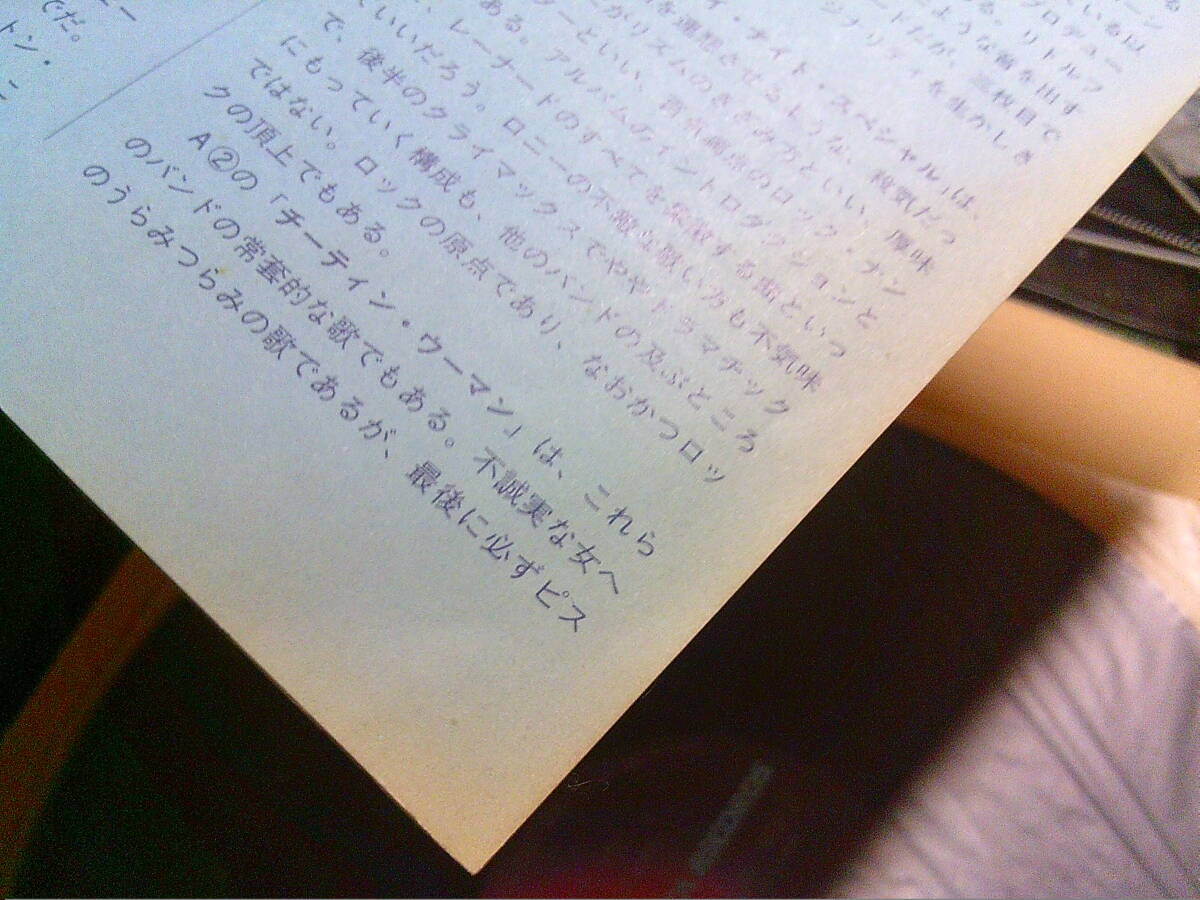 ー
でだ。
トン・
こ
ているは
プロデュー
る。リトルフ
ような音を出す
ードだが、三枚目で
ジナリティを生かしき
イ・ナイト・スペシャル」は、
を連想させるような、殺気だっ
がリズムのきざみ方といい、厚味
ターといい、
ある。アルバムのイントロダクションと
、レーナードのすべてを象徴する曲といっ
ていいだろう。ロニーの不敵な歌い方も不気味
で、後半のクライマックスでややドラマチック
にもっていく構成も、他のバンドの及ぶところ
ではない。ロックの原点であり、なおかつロッ
クの頂上でもある。
A②の「チーティン・ウーマン」は、これら
のバンドの常套的な歌でもある。不誠実な女へ
のうらみつらみの歌であるが、最後に必ずピス